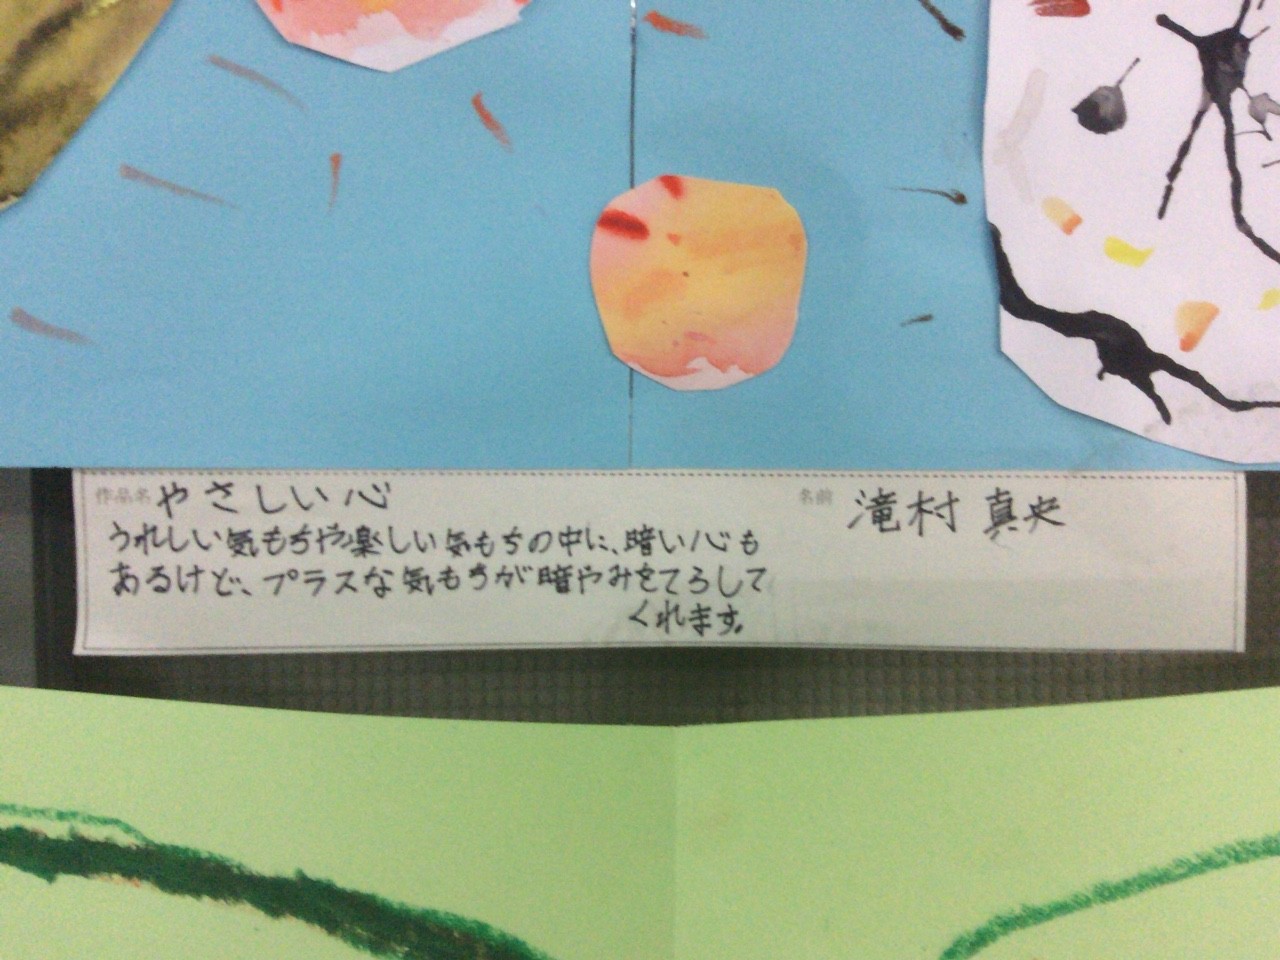 作品名 やさしい心
名前 滝村 真央
うれしい気もちや楽しい気もちの中に、暗い心も
あるけど、プラスな気もちが暗やみをてらして
くれます。